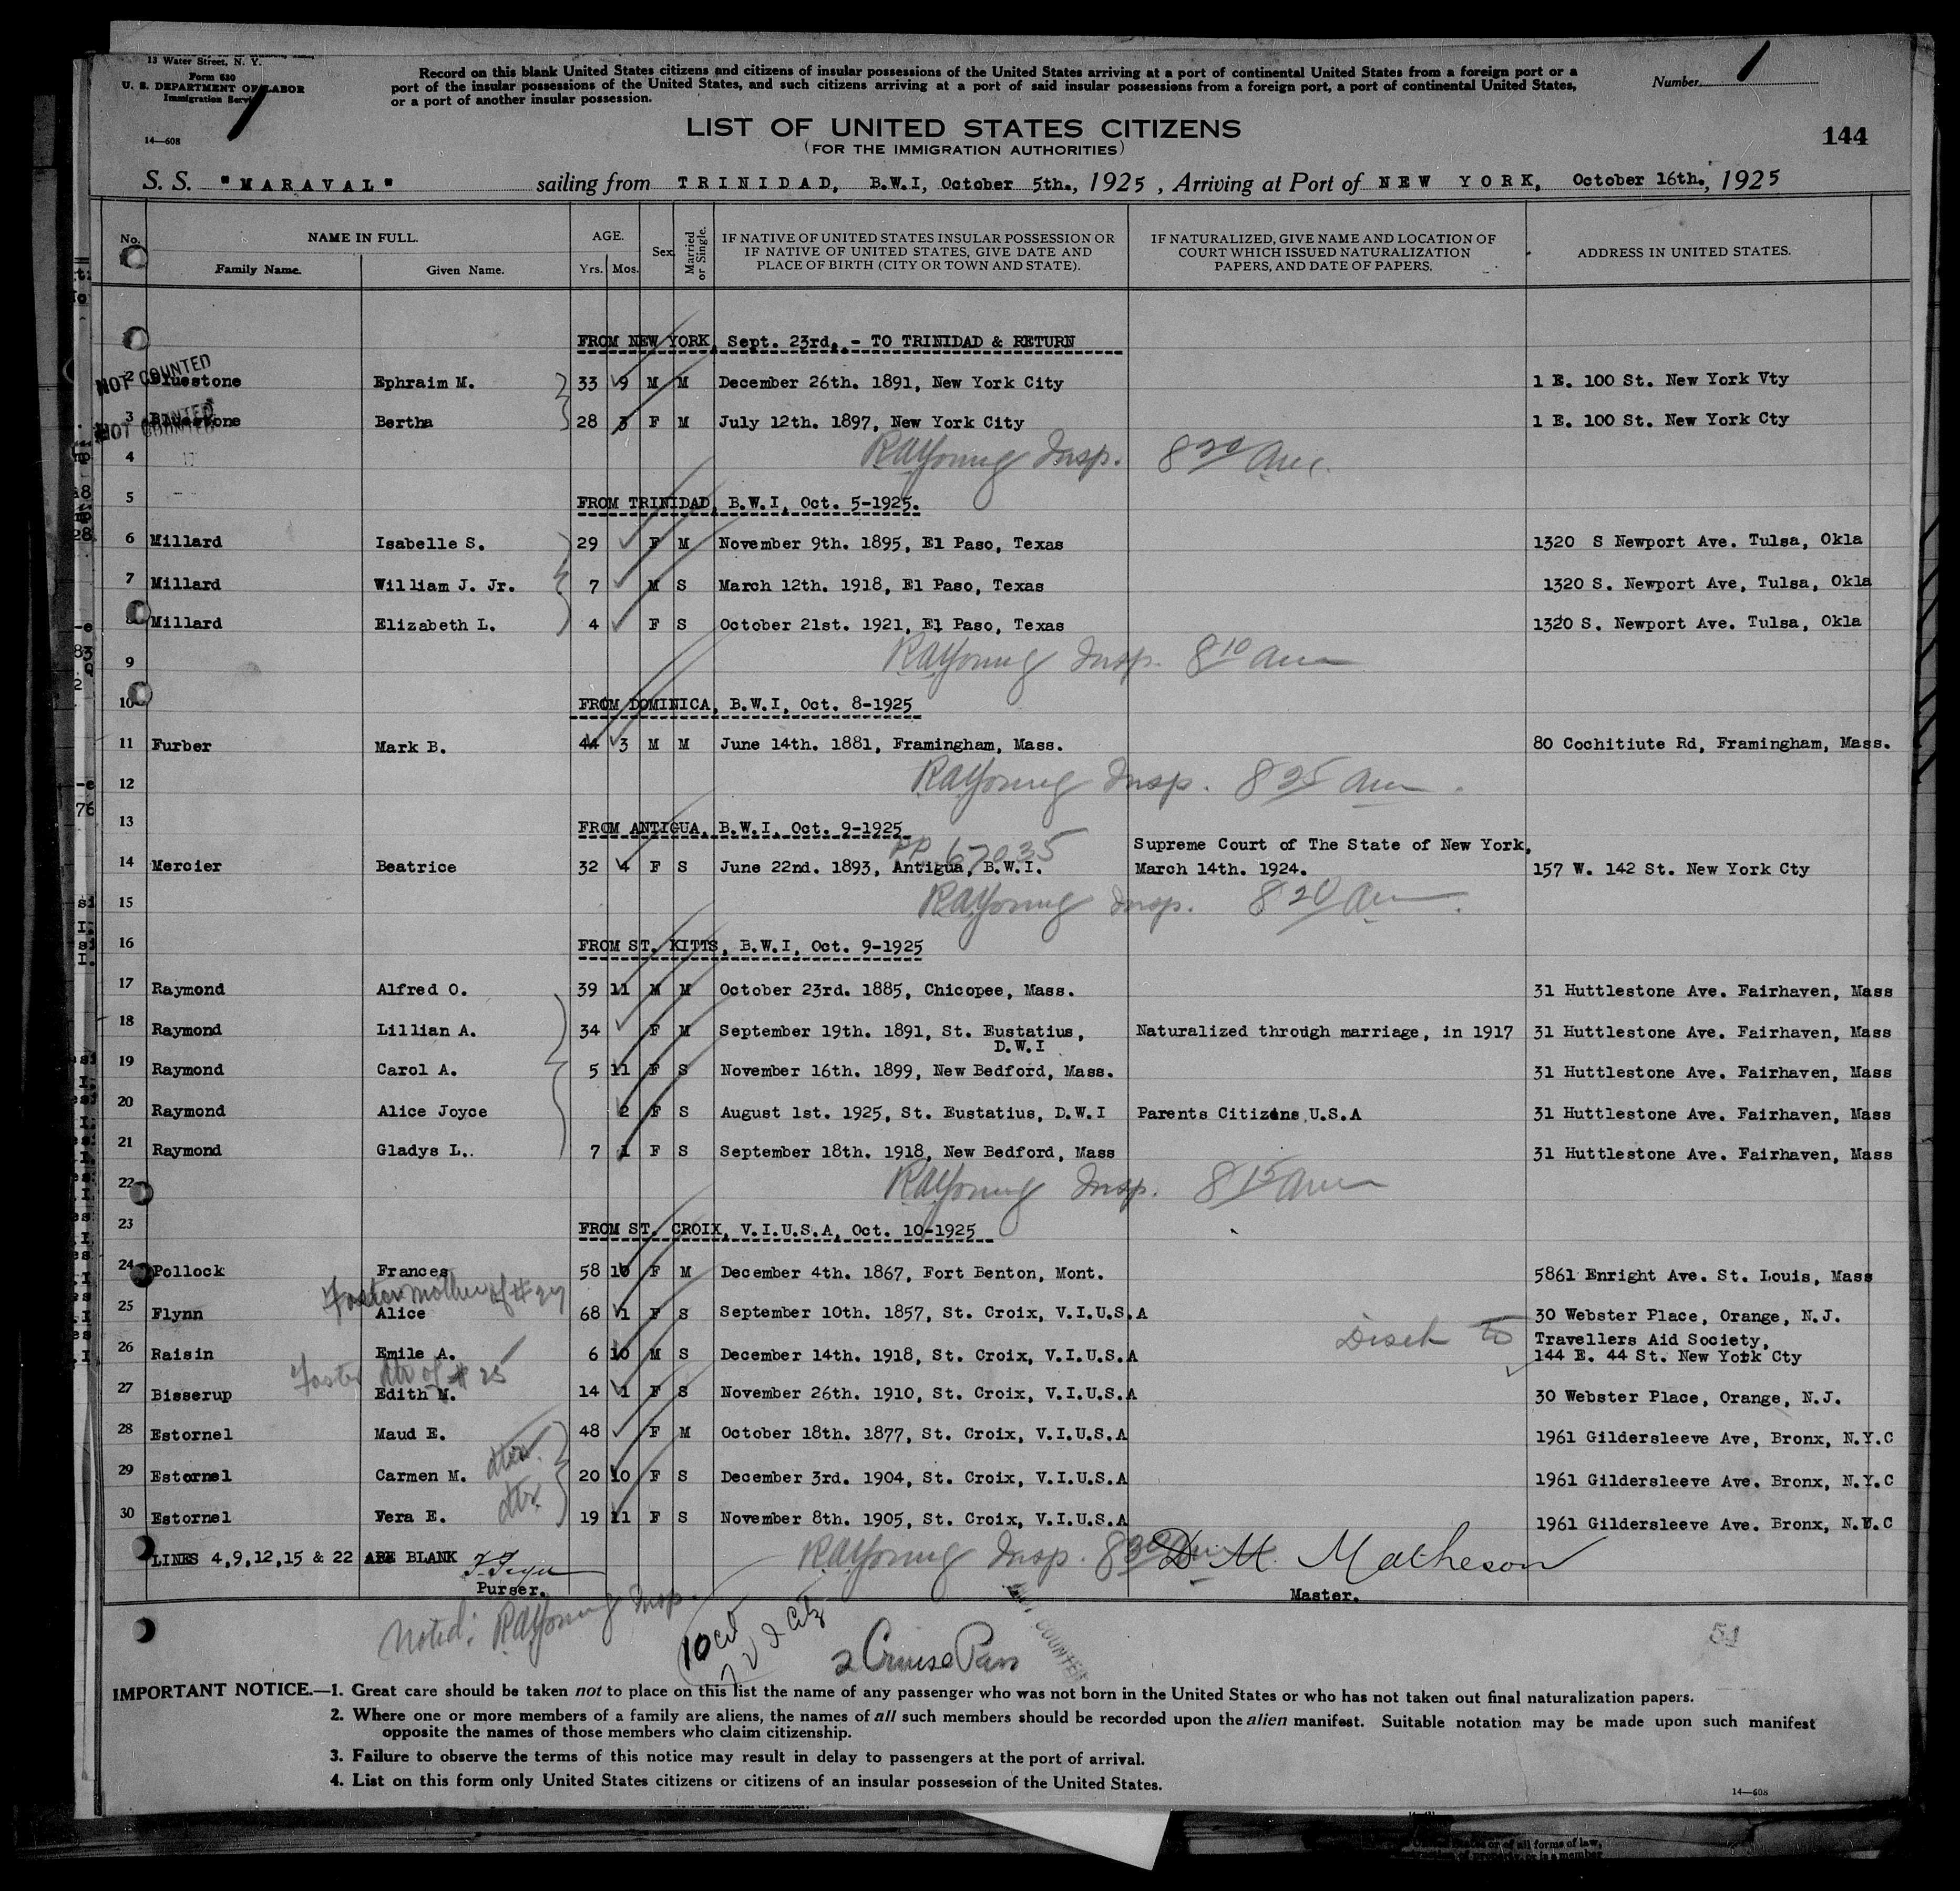 13 Water Street, N. Y.
Form 630
U. S. DEPARTMENT OF LABOR
Immigration Service
14—608
Record on this blank United States citizens and citizens of insular possessions of the United States arriving at a port of continental United States from a foreign port or a
port of the insular possessions of the United States, and such citizens arriving at a port of said insular possessions from a foreign port, a port of continental United States,
or a port of another insular possession.
Number 1
LIST OF UNITED STATES CITIZENS
(FOR THE IMMIGRATION AUTHORITIES)
144
S. S. "MARAVAL" sailing from TRINIDAD, B.W.I, October 5th., 1925, Arriving at Port of NEW YORK, October 16th., 1925
No. NAME IN FULL. AGE. Sex Married or Single. IF NATIVE OF UNITED STATES INSULAR POSSESSION OR IF NATIVE OF UNITED STATES, GIVE DATE AND PLACE OF BIRTH (CITY OR TOWN AND STATE). IF NATURALIZED, GIVE NAME AND LOCATION OF COURT WHICH ISSUED NATURALIZATION PAPERS, AND DATE OF PAPERS. ADDRESS IN UNITED STATES.
Family Name. Given Name. Yrs. Mos.
FROM NEW YORK, Sept. 23rd, - TO TRINIDAD & RETURN
NOT COUNTED
2 Bluestone Ephraim M. 33 9 M M December 26th. 1891, New York City 1 E. 100 St. New York Vty
NOT COUNTED
3 Bluestone Bertha 28 3 F M July 12th. 1897, New York City 1 E. 100 St. New York Cty
4 RAYoung Insp. 8 20 am
5 FROM TRINIDAD, B.W.I, Oct. 5-1925.
6 Millard Isabelle S. 29 F M November 9th. 1895, El Paso, Texas 1320 S Newport Ave. Tulsa, Okla
7 Millard William J. Jr. 7 M S March 12th. 1918, El Paso, Texas 1320 S. Newport Ave, Tulsa, Okla
8 Millard Elizabeth L. 4 F S October 21st. 1921, El Paso, Texas 1320 S. Newport Ave. Tulsa, Okla
9 RAYoung Insp. 8 10 am
10 FROM DOMINICA, B.W.I, Oct. 8-1925
11 Furber Mark B. 44 3 M M June 14th. 1881, Framingham, Mass. 80 Cochitiute Rd, Framingham, Mass.
12 RAYoung Insp. 8 25 am
13 FROM ANTIGUA, B.W.I, Oct. 9-1925
PP. 67035
Supreme Court of The State of New York,
14 Mercier Beatrice 32 4 F S June 22nd. 1893, Antigua, B.W.I. March 14th. 1924. 157 W. 142 St. New York Cty
15 RAYoung Insp. 8 20 am
16 FROM ST. KITTS, B.W.I, Oct. 9-1925
17 Raymond Alfred O. 39 11 M M October 23rd. 1885, Chicopee, Mass. 31 Huttlestone Ave. Fairhaven, Mass
18 Raymond Lillian A. 34 F M September 19th. 1891, St. Eustatius, Naturalized through marriage, in 1917 31 Huttlestone Ave. Fairhaven, Mass
D.W.I
19 Raymond Carol A. 5 11 F S November 16th. 1899, New Bedford, Mass. 31 Huttlestone Ave. Fairhaven, Mass
20 Raymond Alice Joyce 2 F S August 1st. 1925, St. Eustatius, D.W.I Parents Citizens U.S.A 31 Huttlestone Ave. Fairhaven, Mass
21 Raymond Gladys L.. 7 1 F S September 18th. 1918, New Bedford, Mass 31 Huttlestone Ave. Fairhaven, Mass
22 RAYoung Insp. 8 15 am
23 FROM ST. CROIX, V.I.U.S.A, Oct. 10-1925
24 Pollock Frances 58 10 F M December 4th. 1867, Fort Benton, Mont. 5861 Enright Ave. St. Louis, Mass
Foster mother of # 27
25 Flynn Alice 68 1 F S September 10th. 1857, St. Croix, V.I.U.S.A 30 Webster Place, Orange, N.J.
Disch to Travellers Aid Society,
26 Raisin Emile A. 6 10 M S December 14th. 1918, St. Croix, V.I.U.S.A 144 E. 44 St. New York Cty
Foster dtr of # 25
27 Bisserup Edith M. 14 1 F S November 26th. 1910, St. Croix, V.I.U.S.A 30 Webster Place, Orange, N.J.
28 Estornel Maud E. 48 F M October 18th. 1877, St. Croix, V.I.U.S.A 1961 Gildersleeve Ave, Bronx, N.Y.C
29 Estornel Carmen M. dtr. 20 10 F S December 3rd. 1904, St. Croix, V.I.U.S.A 1961 Gildersleeve Ave. Bronx, N.Y.C
30 Estornel Vera E. dtr. 19 11 F S November 8th. 1905, St. Croix, V.I.U.S.A 1961 Gildersleeve Ave. Bronx, N.Y.C
LINES 4,9,12,15 & 22 ARE BLANK RAYoung Insp. 8 30 D M. Matheson
Purser. Master.
Noted: RAYoung Insp.
10 cit
2 Cruise Pass
54
IMPORTANT NOTICE.—1. Great care should be taken not to place on this list the name of any passenger who was not born in the United States or who has not taken out final naturalization papers.
2. Where one or more members of a family are aliens, the names of all such members should be recorded upon the alien manifest. Suitable notation may be made upon such manifest
opposite the names of those members who claim citizenship.
3. Failure to observe the terms of this notice may result in delay to passengers at the port of arrival.
4. List on this form only United States citizens or citizens of an insular possession of the United States.
14—608